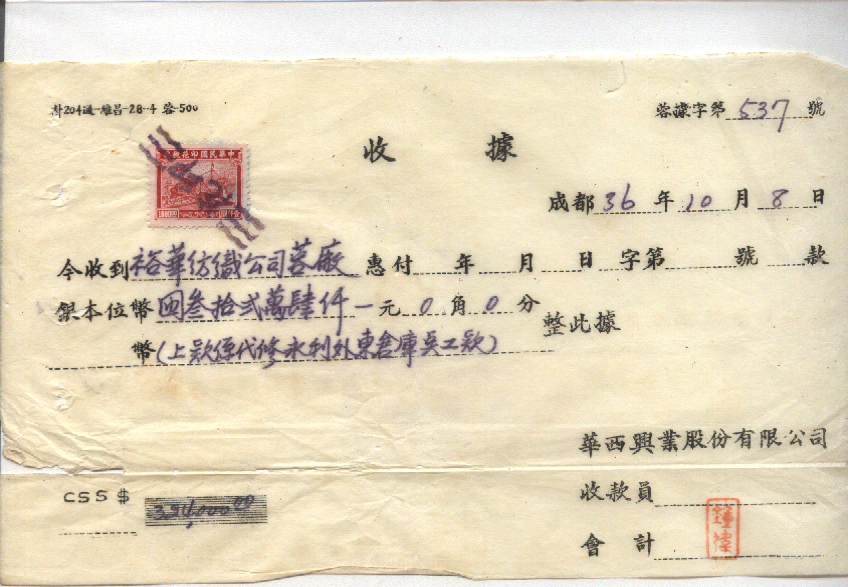 卦204過-雄昌-28-4 蓉-500
蓉據字第 537 號
收據
中華民國印花稅票
成都 36 年 10 月 8 日
今收到裕華紡織公司蓉廠 惠付 年 月 日 字第 號 款
銀本位幣 國叁拾弍萬肆仟一元 0 角 0 分
整此據
幣(上欵係代修永利外東倉庫吳工欵)
華西興業股份有限公司
CSS $ 324,000.00
收款員
會計